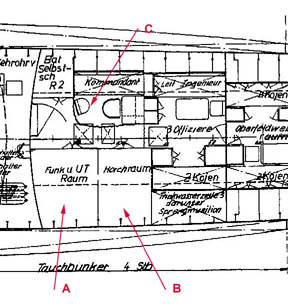 C
ehrohrv
Bat
Selbst-
sch
R2
Kommandant
Leit Ingenieur
3 Offiziere
Kojen
Oberfeldwe
Funk u UT
Raum
Horchraum
2 Kojen
2 Kojen
Trinkwasserzelle 3
darunter
Sprengmunition
Tauchbunker 4 Stb
A
B